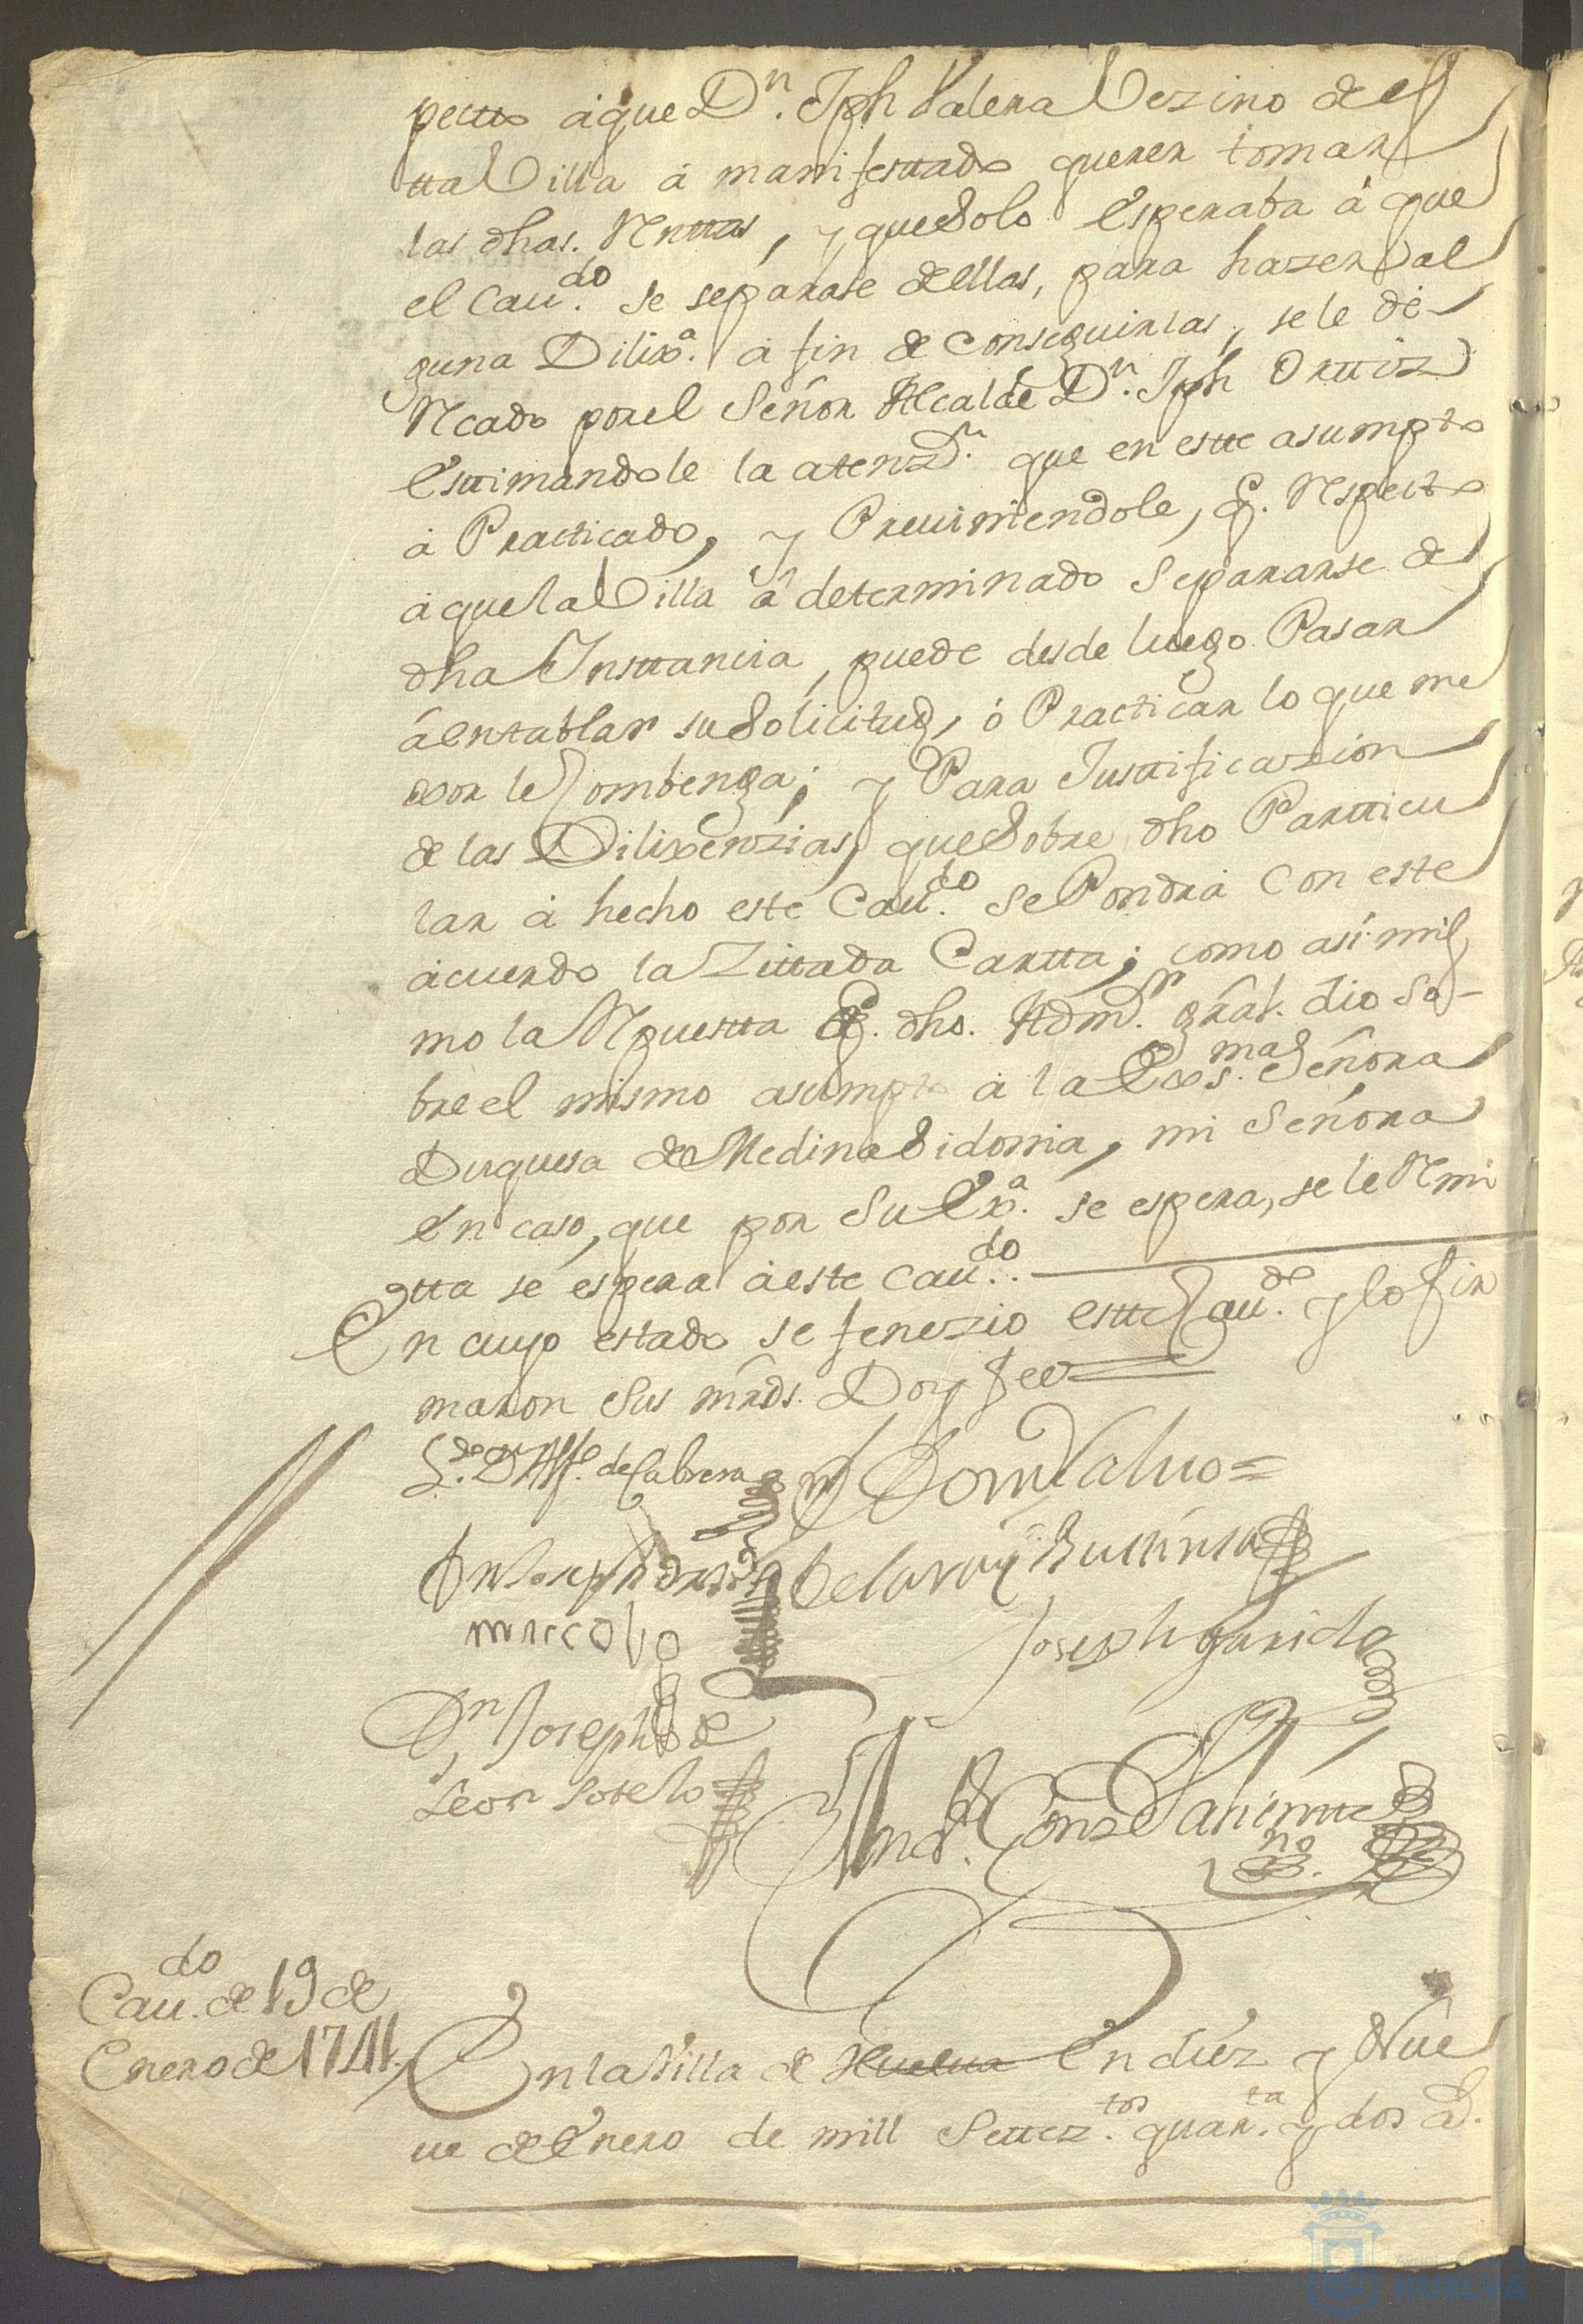 pectto à que Dn. Jph Valera Vezino de es
tta Villa à manifesttado querer tomar
las dhas. Renttas, y que Solo esperaba à que
el Caudo. se separase de ellas, para hazer al
guna Dilixa. à fin de conseguirlas, se le dè
Rcado por el Señor Alcalde Dn. Jph Orttiz
esttimandole la atenzn. que en estte asumpto
à Practicado, y Preuiniendole, q. Respecto
à que la Villa â determinado Separarse de
dha Insttancia, puede desde luego Pasar
à entablar su Solicitud, ò Practicar lo que me
xor le Combenga; y Para Justtificazion
de las Dilixenzias, que Sobre dho Parrticu
lar à hecho este Caudo. Se Pondrà con este
acuerdo la Zittada Cartta; como asi mis
mo la Rpuestta q. dho. Admr. gral. dio So-
bre el mismo asumpto à la Exsma. Señora
Duquesa de Medina Sidonia, mi Señora
en caso, que por Su Exa. se espera, se le Rmi
tta se espera à este Caudo.
En cuyo estado se fenezio estte Caudo. y lo fir
maron Sus mrds. Doy fee
Ldo. Dn Alfo. de Cabrera
Dn Joseph Ortiz
Joseph garrido
Dn Joseph de
Leon Sotelo
Cau.do de 19 de
Enero de 1742.
En la Villa de Huelua en diéz y Nue
ue de Enero de mill Settez.tos quar.ta y dos a.s
AYUNTAMIENTO DE
HUELVA